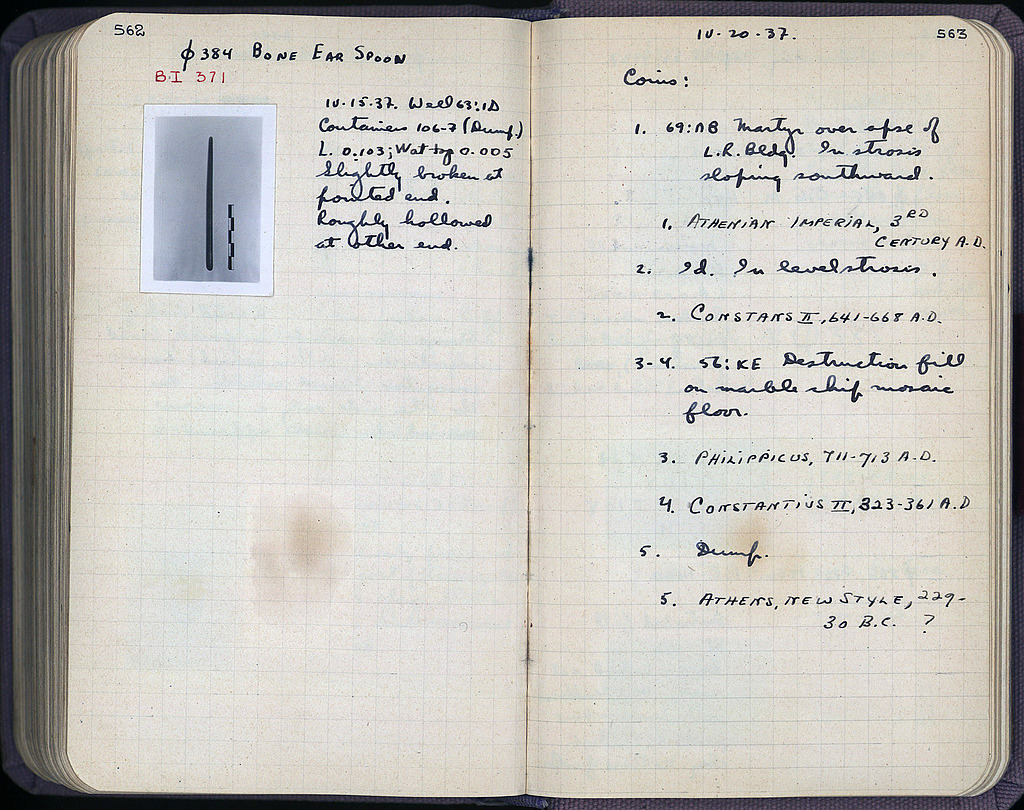 562
φ 384 BONE EAR SPOON
BI 371
IV-15-37. Well 63:ΙΔ
Containers 106-7 (Dump.)
L. 0.103; W at top 0.005
Slightly broken at
pointed end.
Roughly hollowed
at other end.
IV-20-37.
563
Coins:
1. 69:ΛΒ Martyr over apse of
L.R. Bldg. In strosis
sloping southward.
1. ATHENIAN IMPERIAL, 3RD
CENTURY A.D.
2. Id. In level strosis.
2. CONSTANS II, 641-668 A.D.
3-4. 56:ΚΕ Destruction fill
on marble chip mosaic
floor.
3. PHILIPPICUS, 711-713 A.D.
4. CONSTANTIUS II, 323-361 A.D
5. Dump.
5. ATHENS, NEW STYLE, 229-
30 B.C. ?